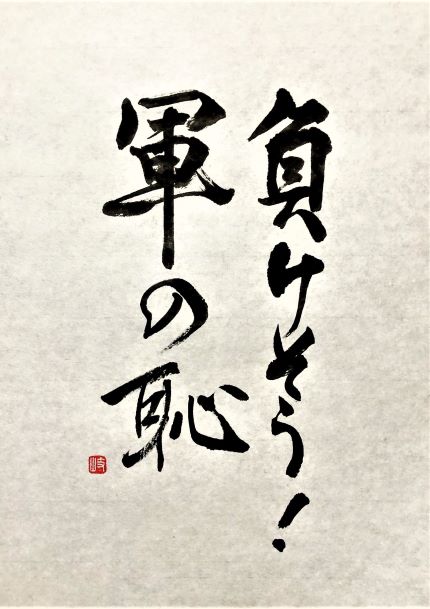 負けそう!
軍の恥
岐